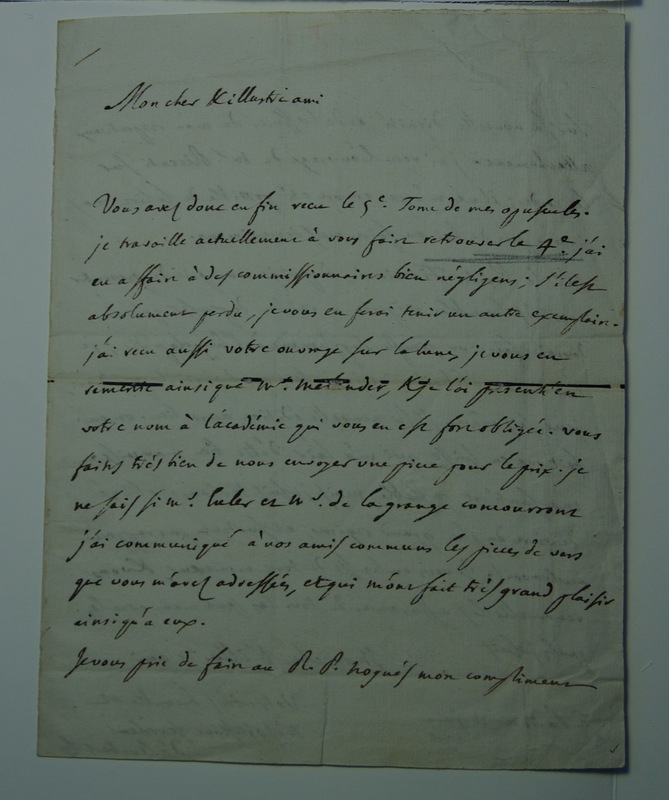 Mon cher & illustre ami
Vous avez donc enfin recu le 5e. Tome de mes opuscules.
je travaille actuellement à vous faire retrouver le 4e. j'ai
eu affaire à des commissionnaires bien négligens; s'il est
absolument perdu, je vous en ferai tenir un autre exemplaire.
j'ai recu aussi votre ouvrage sur la lune, je vous en
remercie ainsi que mr. & je l'ai présenté en
votre nom à l'académie qui vous en est fort obligée. vous
faites très bien de nous envoyer une piece pour le prix. je
ne sais si mr. Euler et mr. de la grange concourront
j'ai communiqué à nos amis communs les pieces de vers
que vous m'avez adressées, et qui m'ont fait très grand plaisir
ainsi qu'a eux.
Je vous prie de faire au R. P. noguès mon compliment